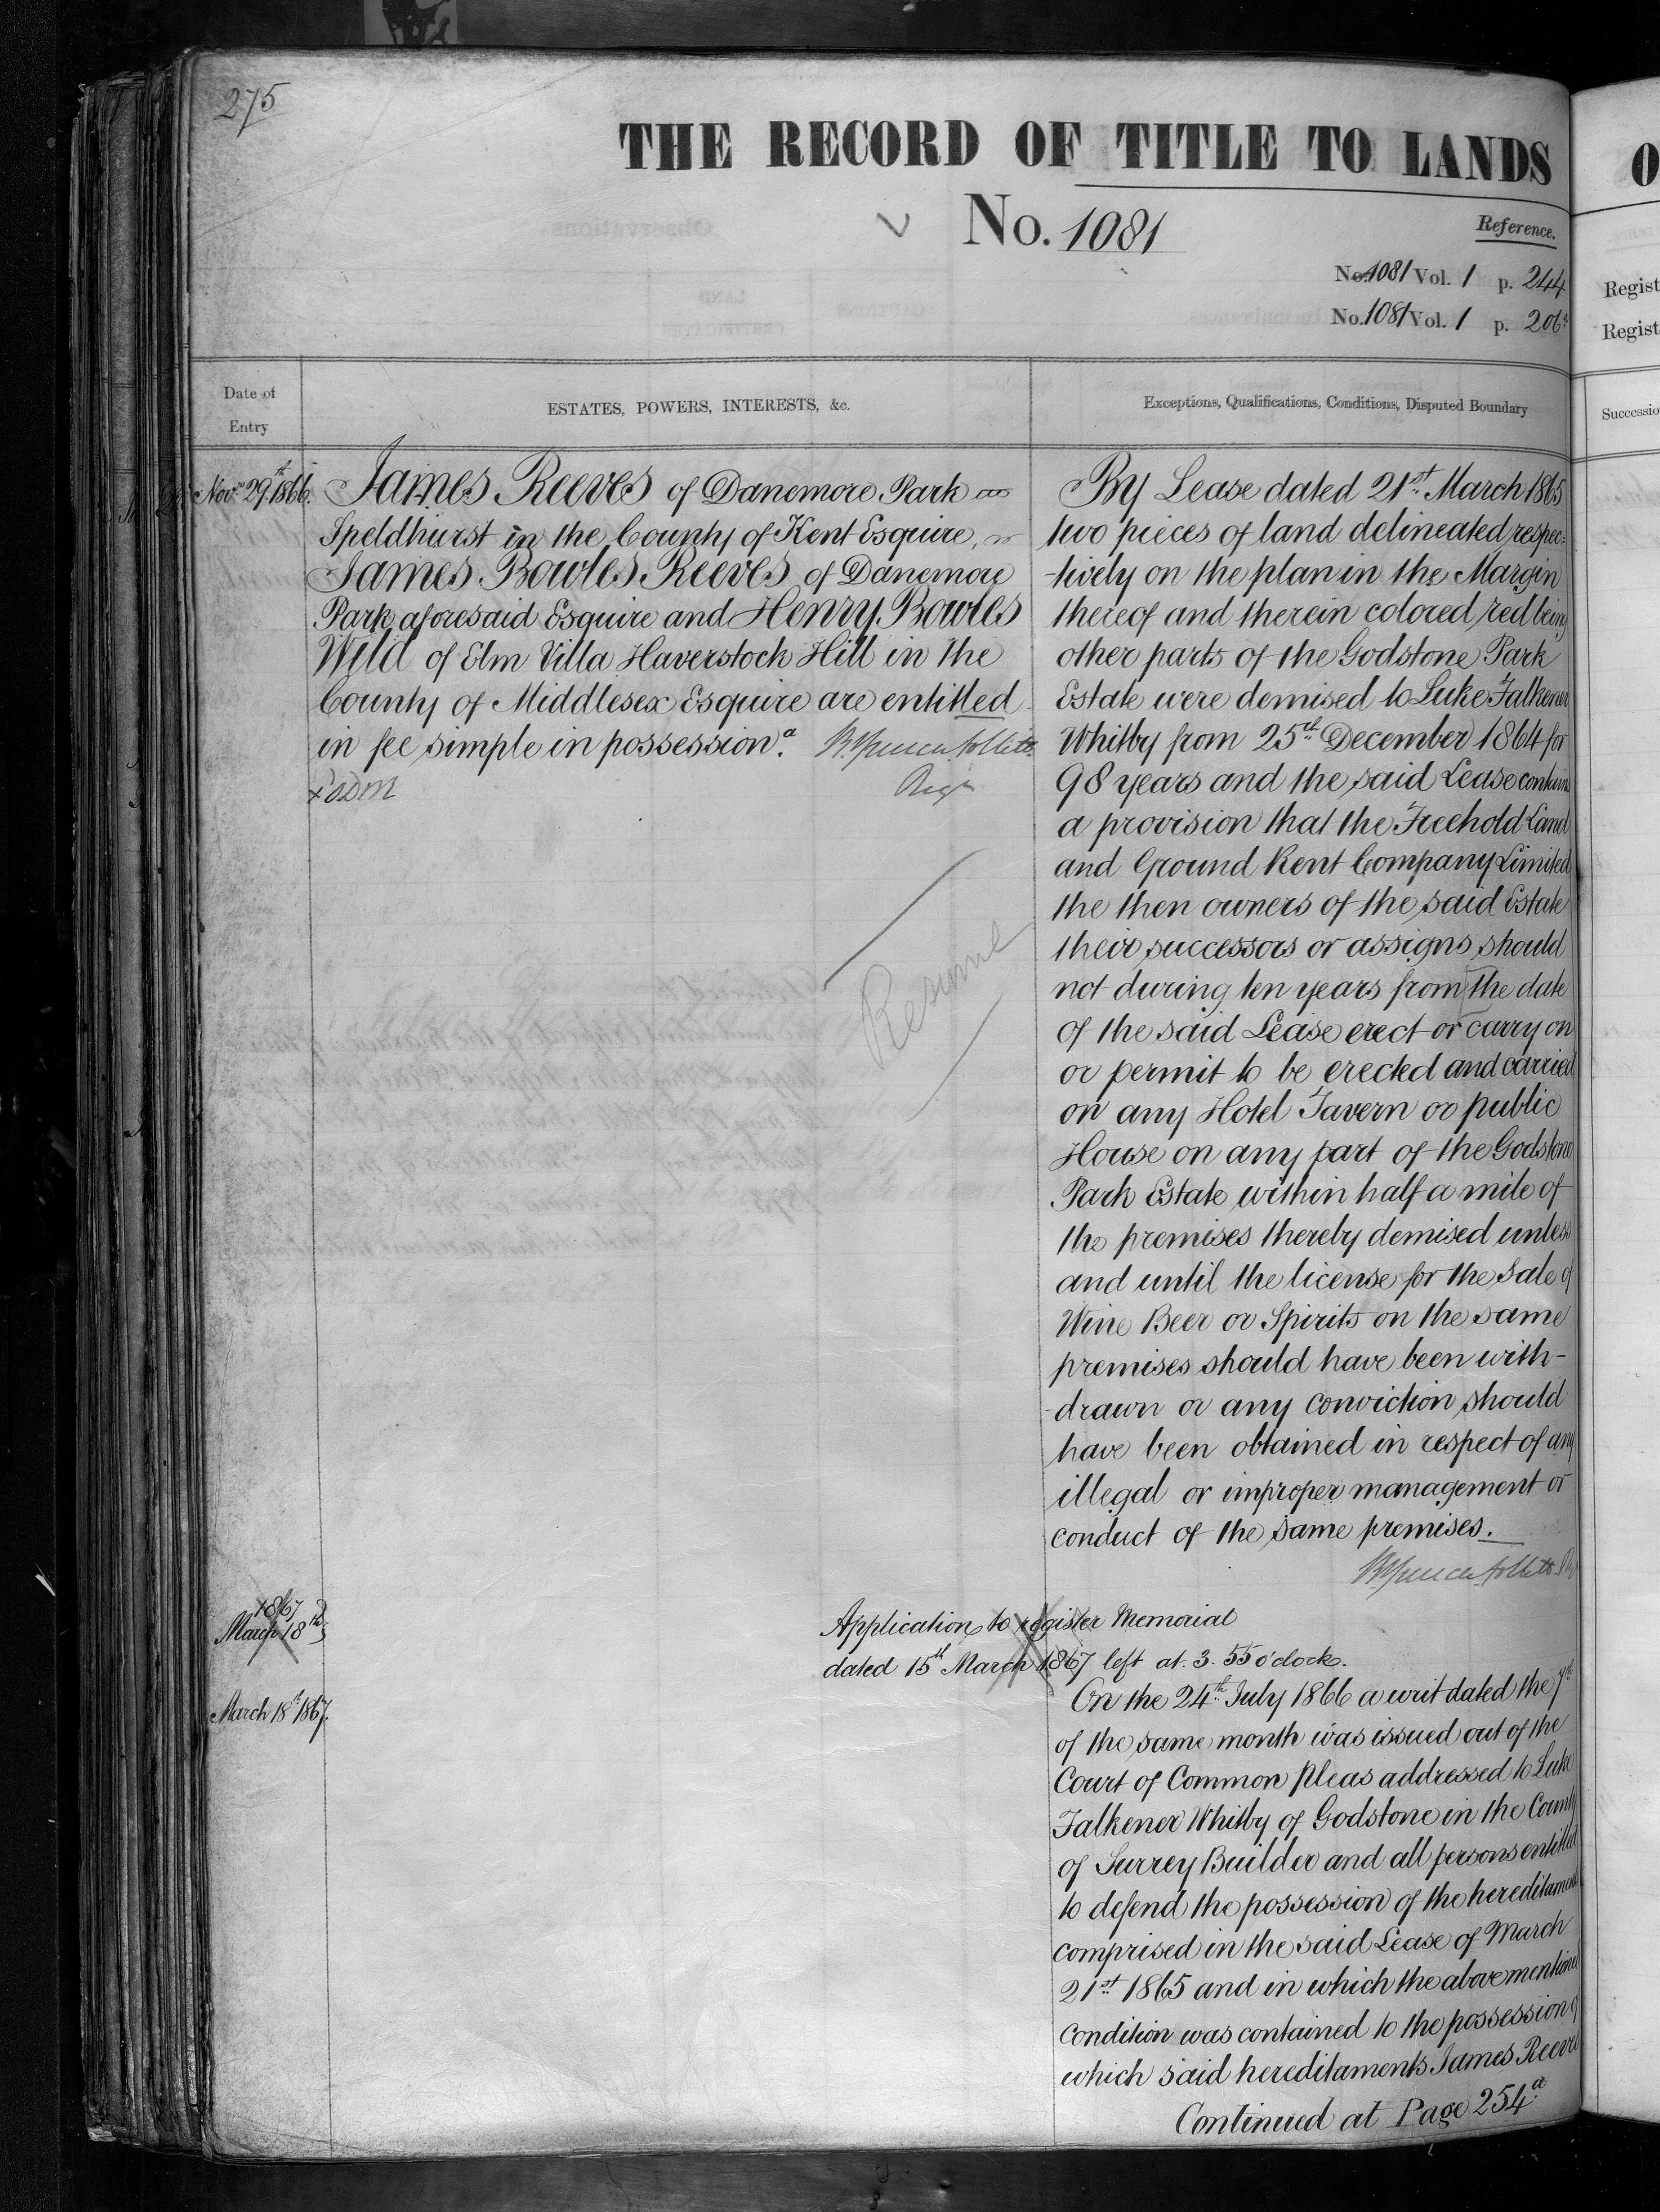 275
THE RECORD OF TITLE TO LANDS
No. 1081
Reference.
No. 1081 Vol. 1 p. 244
No. 1081 Vol. 1 p. 206
Regist
Regist
Date of
Entry
ESTATES, POWERS, INTERESTS, &c.
Exceptions, Qualifications, Conditions, Disputed Boundary
Successio
Novr 29th 1866.
James Reeves of Danemore Park
Speldhurst in the County of Kent Esquire,
James Bowles Reeves of Danemore
Park aforesaid Esquire and Henry Bowles
Wild of Elm Villa Haverstock Hill in the
County of Middlesex Esquire are entitled
in fee simple in possession.
Regr
Resume
By Lease dated 21st March 1865
two pieces of land delineated respec=
-tively on the plan in the Margin
thereof and therein colored red being
other parts of the Godstone Park
Estate were demised to Luke Falkener
Whitby from 25th December 1864 for
98 years and the said Lease contains
a provision that the Freehold Land
and Ground Rent Company Limited
the then owners of the said Estate
their successors or assigns should
not during ten years from the date
of the said Lease erect or carry on
or permit to be erected and carried
on any Hotel Tavern or public
House on any part of the Godstone
Park Estate within half a mile of
the premises thereby demised unless
and until the license for the Sale of
Wine Beer or Spirits on the same
premises should have been with-
-drawn or any conviction should
have been obtained in respect of any
illegal or improper management or
conduct of the same premises.
1867
March 18th
Application to register Memorial
dated 15th March 1867 left at 3.55 o'clock.
March 18th 1867.
On the 24th July 1866 a writ dated the 7th
of the same month was issued out of the
Court of Common Pleas addressed to Luke
Falkener Whitby of Godstone in the County
of Surrey Builder and all persons entitled
to defend the possession of the hereditaments
comprised in the said Lease of March
21st 1865 and in which the abovementioned
condition was contained to the possession of
which said hereditaments James Reeves
Continued at Page 254a